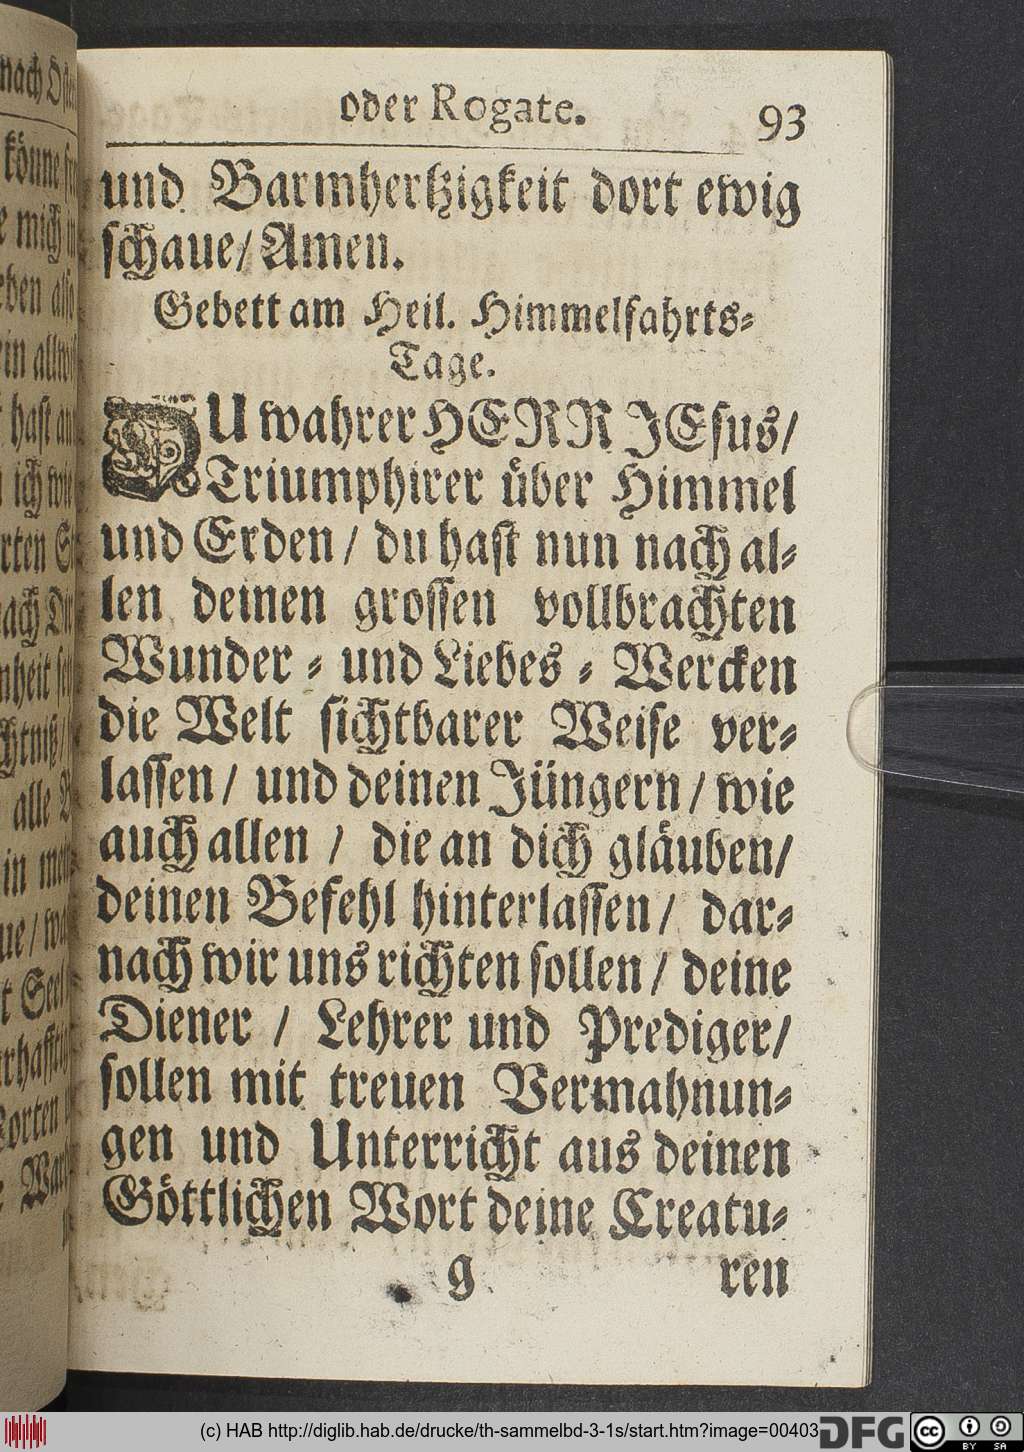 oder Rogate. 93
und Barmhertzigkeit dort ewig
schaue/ Amen.
Gebett am Heil. Himmelfahrts-
Tage.
DU wahrer HERR JEsus/
Triumphirer über Himmel
und Erden / du hast nun nach al-
len deinen grossen vollbrachten
Wunder - und Liebes - Wercken
die Welt sichtbarer Weise ver-
lassen / und deinen Jüngern / wie
auch allen / die an dich gläuben/
deinen Befehl hinterlassen / dar-
nach wir uns richten sollen / deine
Diener / Lehrer und Prediger/
sollen mit treuen Vermahnun-
gen und Unterricht aus deinen
Göttlichen Wort deine Creatu-
g ren
(c) HAB http://diglib.hab.de/drucke/th-sammelbd-3-1s/start.htm?image=00403
DFG cc BY SA